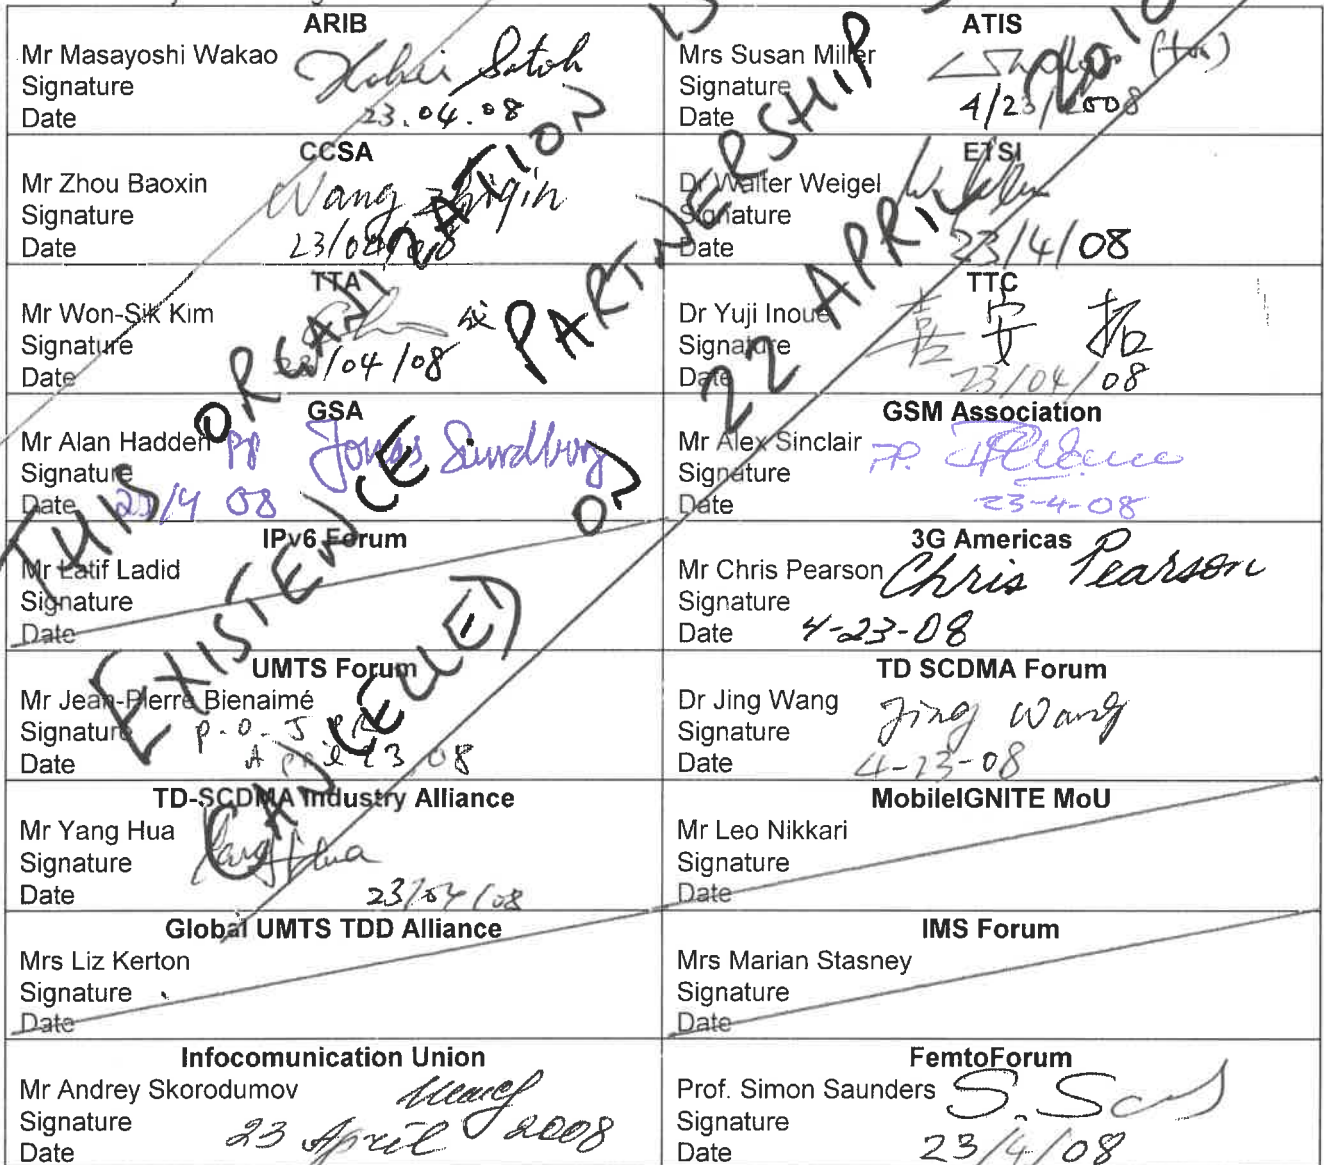 ARIB
Mr Masayoshi Wakao
Signature
Date 23.04.08
ATIS
Mrs Susan Miller
Signature
Date 4/23/2008
CCSA
Mr Zhou Baoxin
Signature Wang Zhiqin
Date 23/04/08
ETSI
Dr Walter Weigel
Signature
Date 23/4/08
TTA
Mr Won-Sik Kim
Signature
Date /04/08
TTC
Dr Yuji Inoue
Signature
Date 23/04/08
GSA
Mr Alan Hadden pp
Signature
Date 23/4 08
GSM Association
Mr Alex Sinclair PP.
Signature
Date 23-4-08
IPv6 Forum
Mr Latif Ladid
Signature
Date
3G Americas
Mr Chris Pearson Chris Pearson
Signature
Date 4-23-08
UMTS Forum
Mr Jean-Pierre Bienaimé
Signature p.o. J
Date April 23, 08
TD SCDMA Forum
Dr Jing Wang
Signature Jing Wang
Date 4-23-08
TD-SCDMA Industry Alliance
Mr Yang Hua
Signature Yang Hua
Date 23/04/08
MobileIGNITE MoU
Mr Leo Nikkari
Signature
Date
Global UMTS TDD Alliance
Mrs Liz Kerton
Signature
Date
IMS Forum
Mrs Marian Stasney
Signature
Date
Infocomunication Union
Mr Andrey Skorodumov
Signature
Date 23 April 2008
FemtoForum
Prof. Simon Saunders
Signature
Date 23/4/08
THIS ORGANIZATION IS
EXISTENCE PARTNERSHIP
CANCELLED ON 22 APRIL 2010